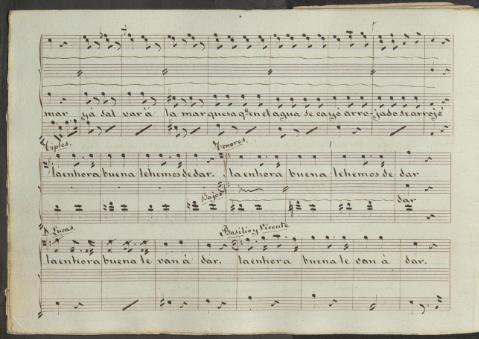 mar ya sal var á la marquesa qe. en el agua se cayó arro jadose arrojó
Tiples. Tenores.
la enhora buena le hemos de dar. la enhora buena le hemos de dar
Bajos dar
D. Lucas Basilio y Vicente
la enhora buena le van á dar. la enhora buena le van á dar.